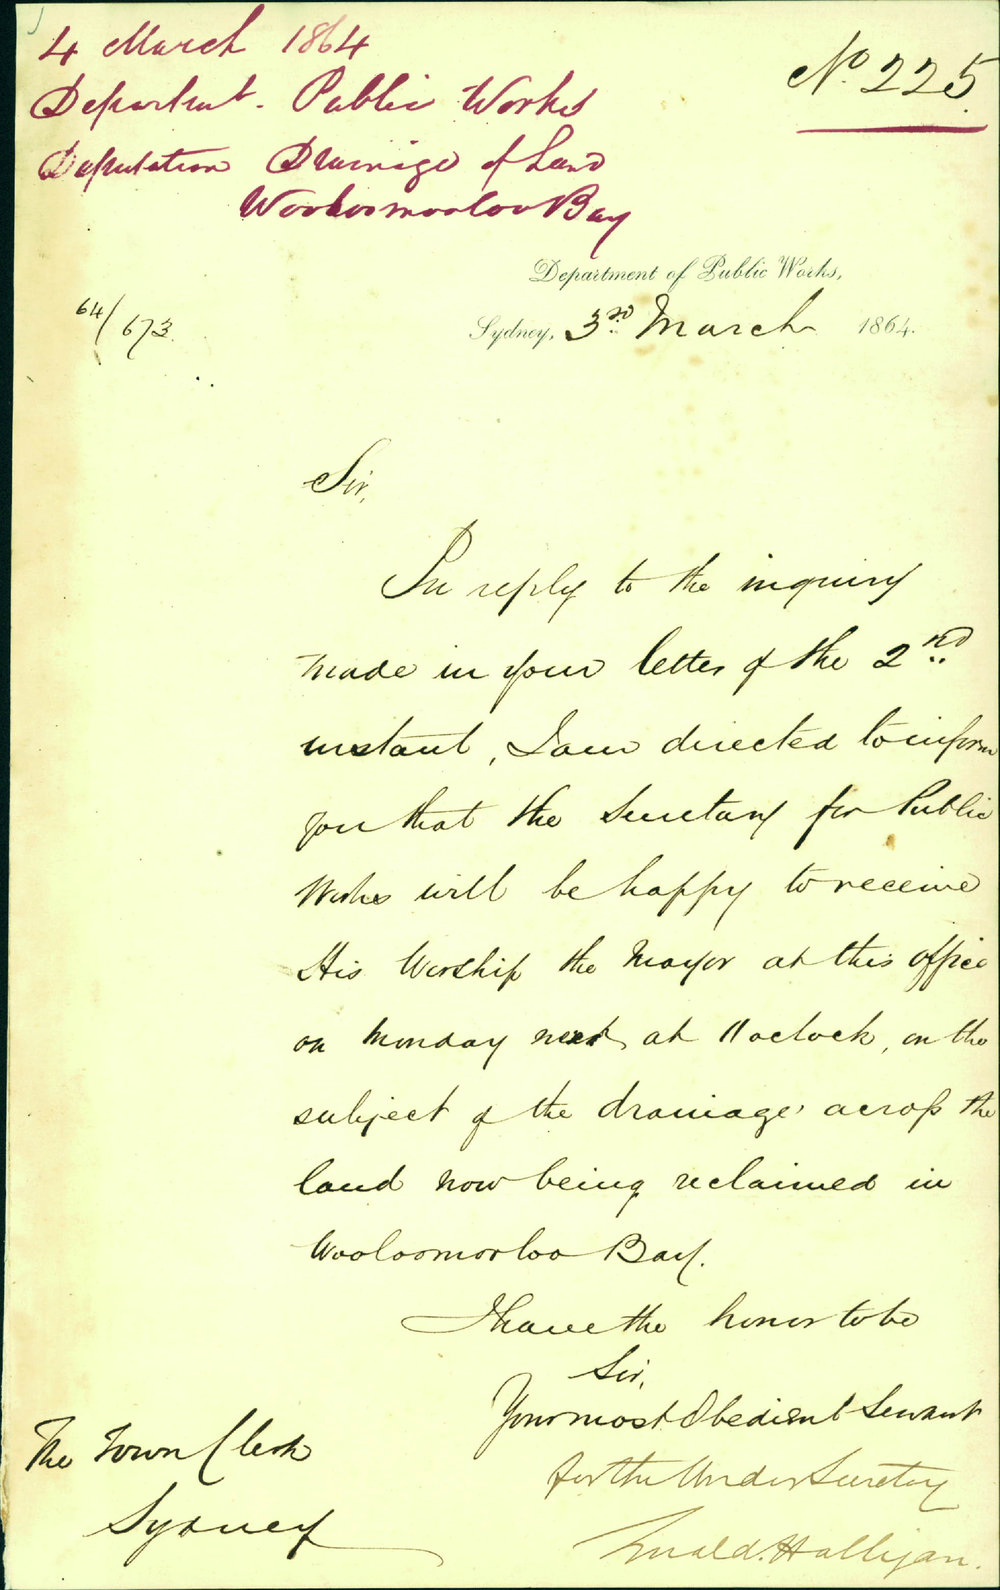 4 March 1864
No. 225
Department. Public Works
Deputation Drainage of Land
Wooloomooloo Bay
Department of Public Works,
64/673.
Sydney, 3rd March 1864.
Sir,
In reply to the inquiry
made in your letter of the 2nd
instant, I am directed to inform
you that the Secretary for Public
Works will be happy to receive
His Worship the Mayor at this office
on Monday next, at 11 oclock, on the
subject of the drainage across the
land now being reclaimed in
Wooloomooloo Bay.
I have the honor to be
Sir,
Your most Obedient Servant
for the Under Secretary
Halligan.
The Town Clerk
Sydney